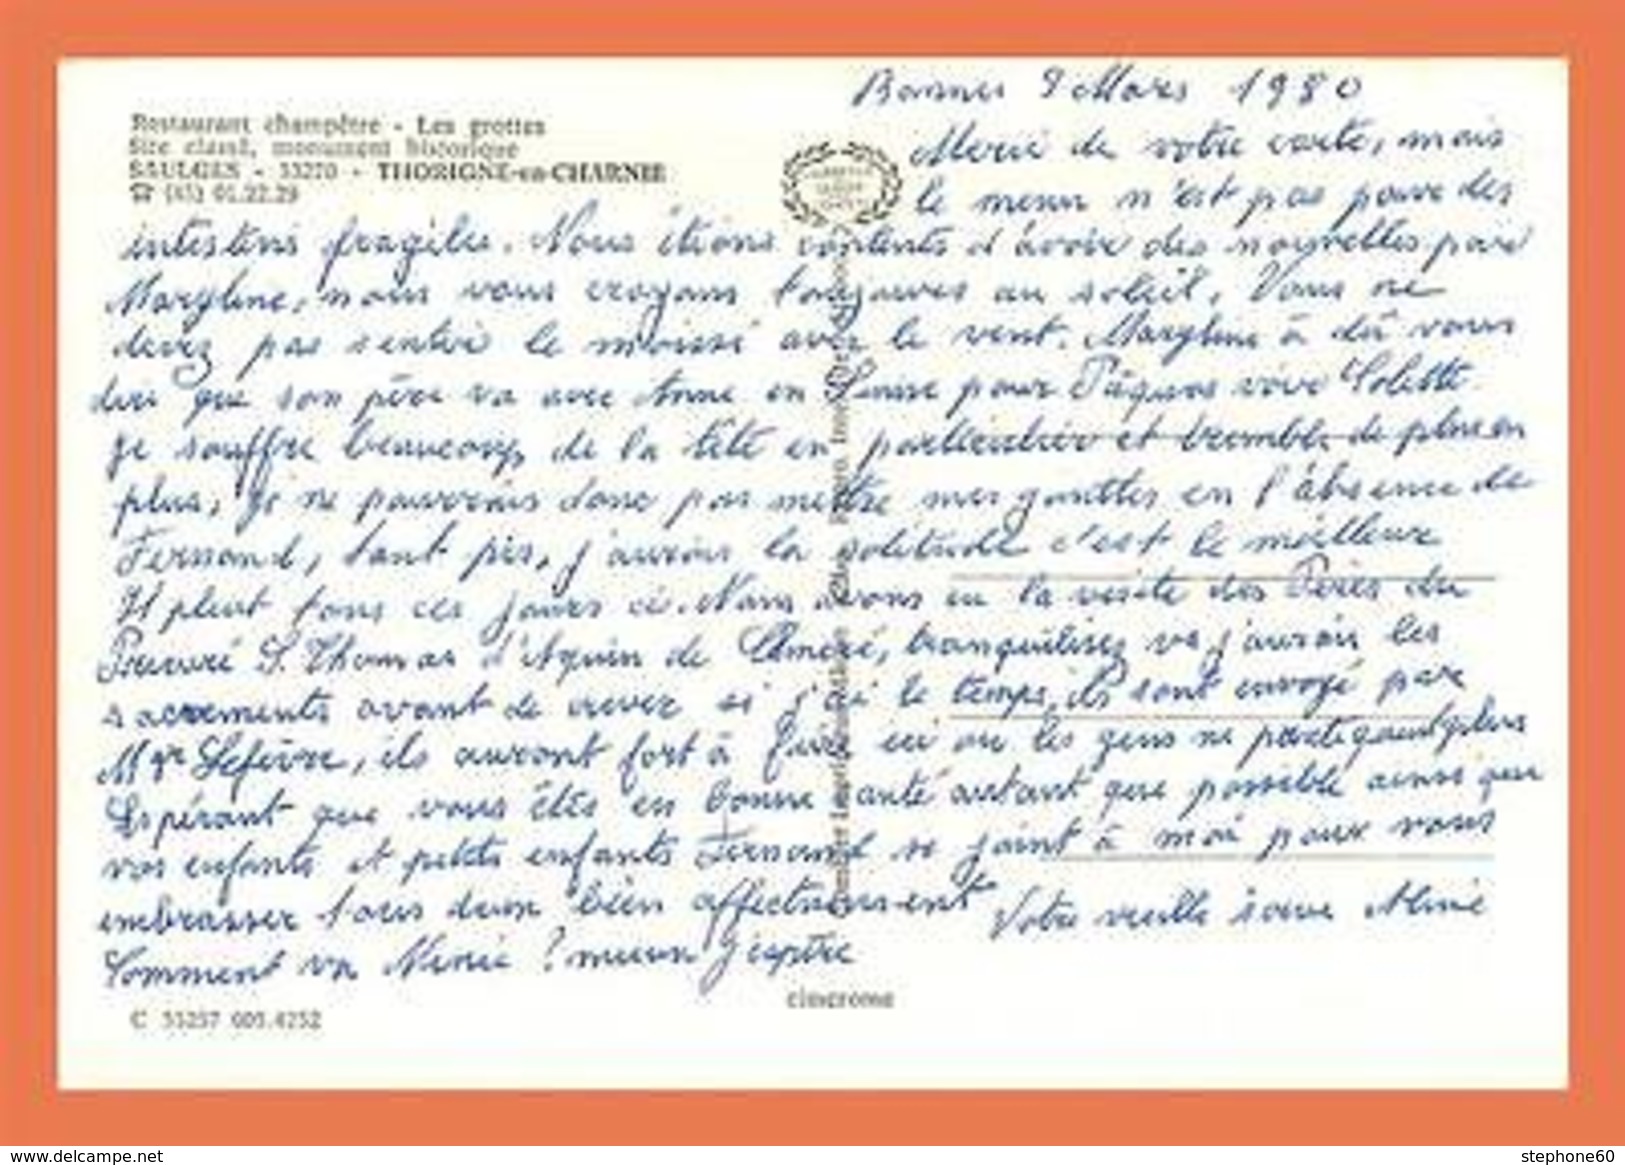 Bannes 9 Mars 1980
Restaurant champêtre - Les grottes
Site classé, monument historique
SAULGES - 53270 - THORIGNE-en-CHARNIE
☎ (43) 01.22.29
Merci de votre carte, mais
le menu n'est pas pour des
intestins fragiles. Nous étions contents d'avoir des nouvelles par
Marylène, nous vous croyons toujours au soleil, Vous ne
devez pas sentir le moisi avec le vent. Marylène à dû vous
dire que son père va avec Anne en Suisse pour Pâques voir Colette
Je souffre beaucoup de la tête en particulier et tremble de plus en
plus, je ne pourrais donc pas mettre mes gouttes en l'absence de
Fernand, tant pis, j'aurais la solitude c'est le meilleur
Il pleut tous ces jours ci. Nous avons eu la visite des Pères du
Prieuré S. Thomas d'Aquin de tranquilisez vs j'aurai les
sacrements avant de crever si j'ai le temps, ils sont envoyé par
Mgr Lefèvre, ils auront fort à faire ici ou les gens ne pratiquent plus
Espérant que vous êtes en bonne santé autant que possible ainsi que
vos enfants et petits enfants Fernand se joint à moi pour vous
embrasser tous deux bien affectueusement Votre vieille soeur
Comment va Ninie ? mieux j'espère
cimcrome
C 53257 005.4252
www.delcampe.net
stephone60